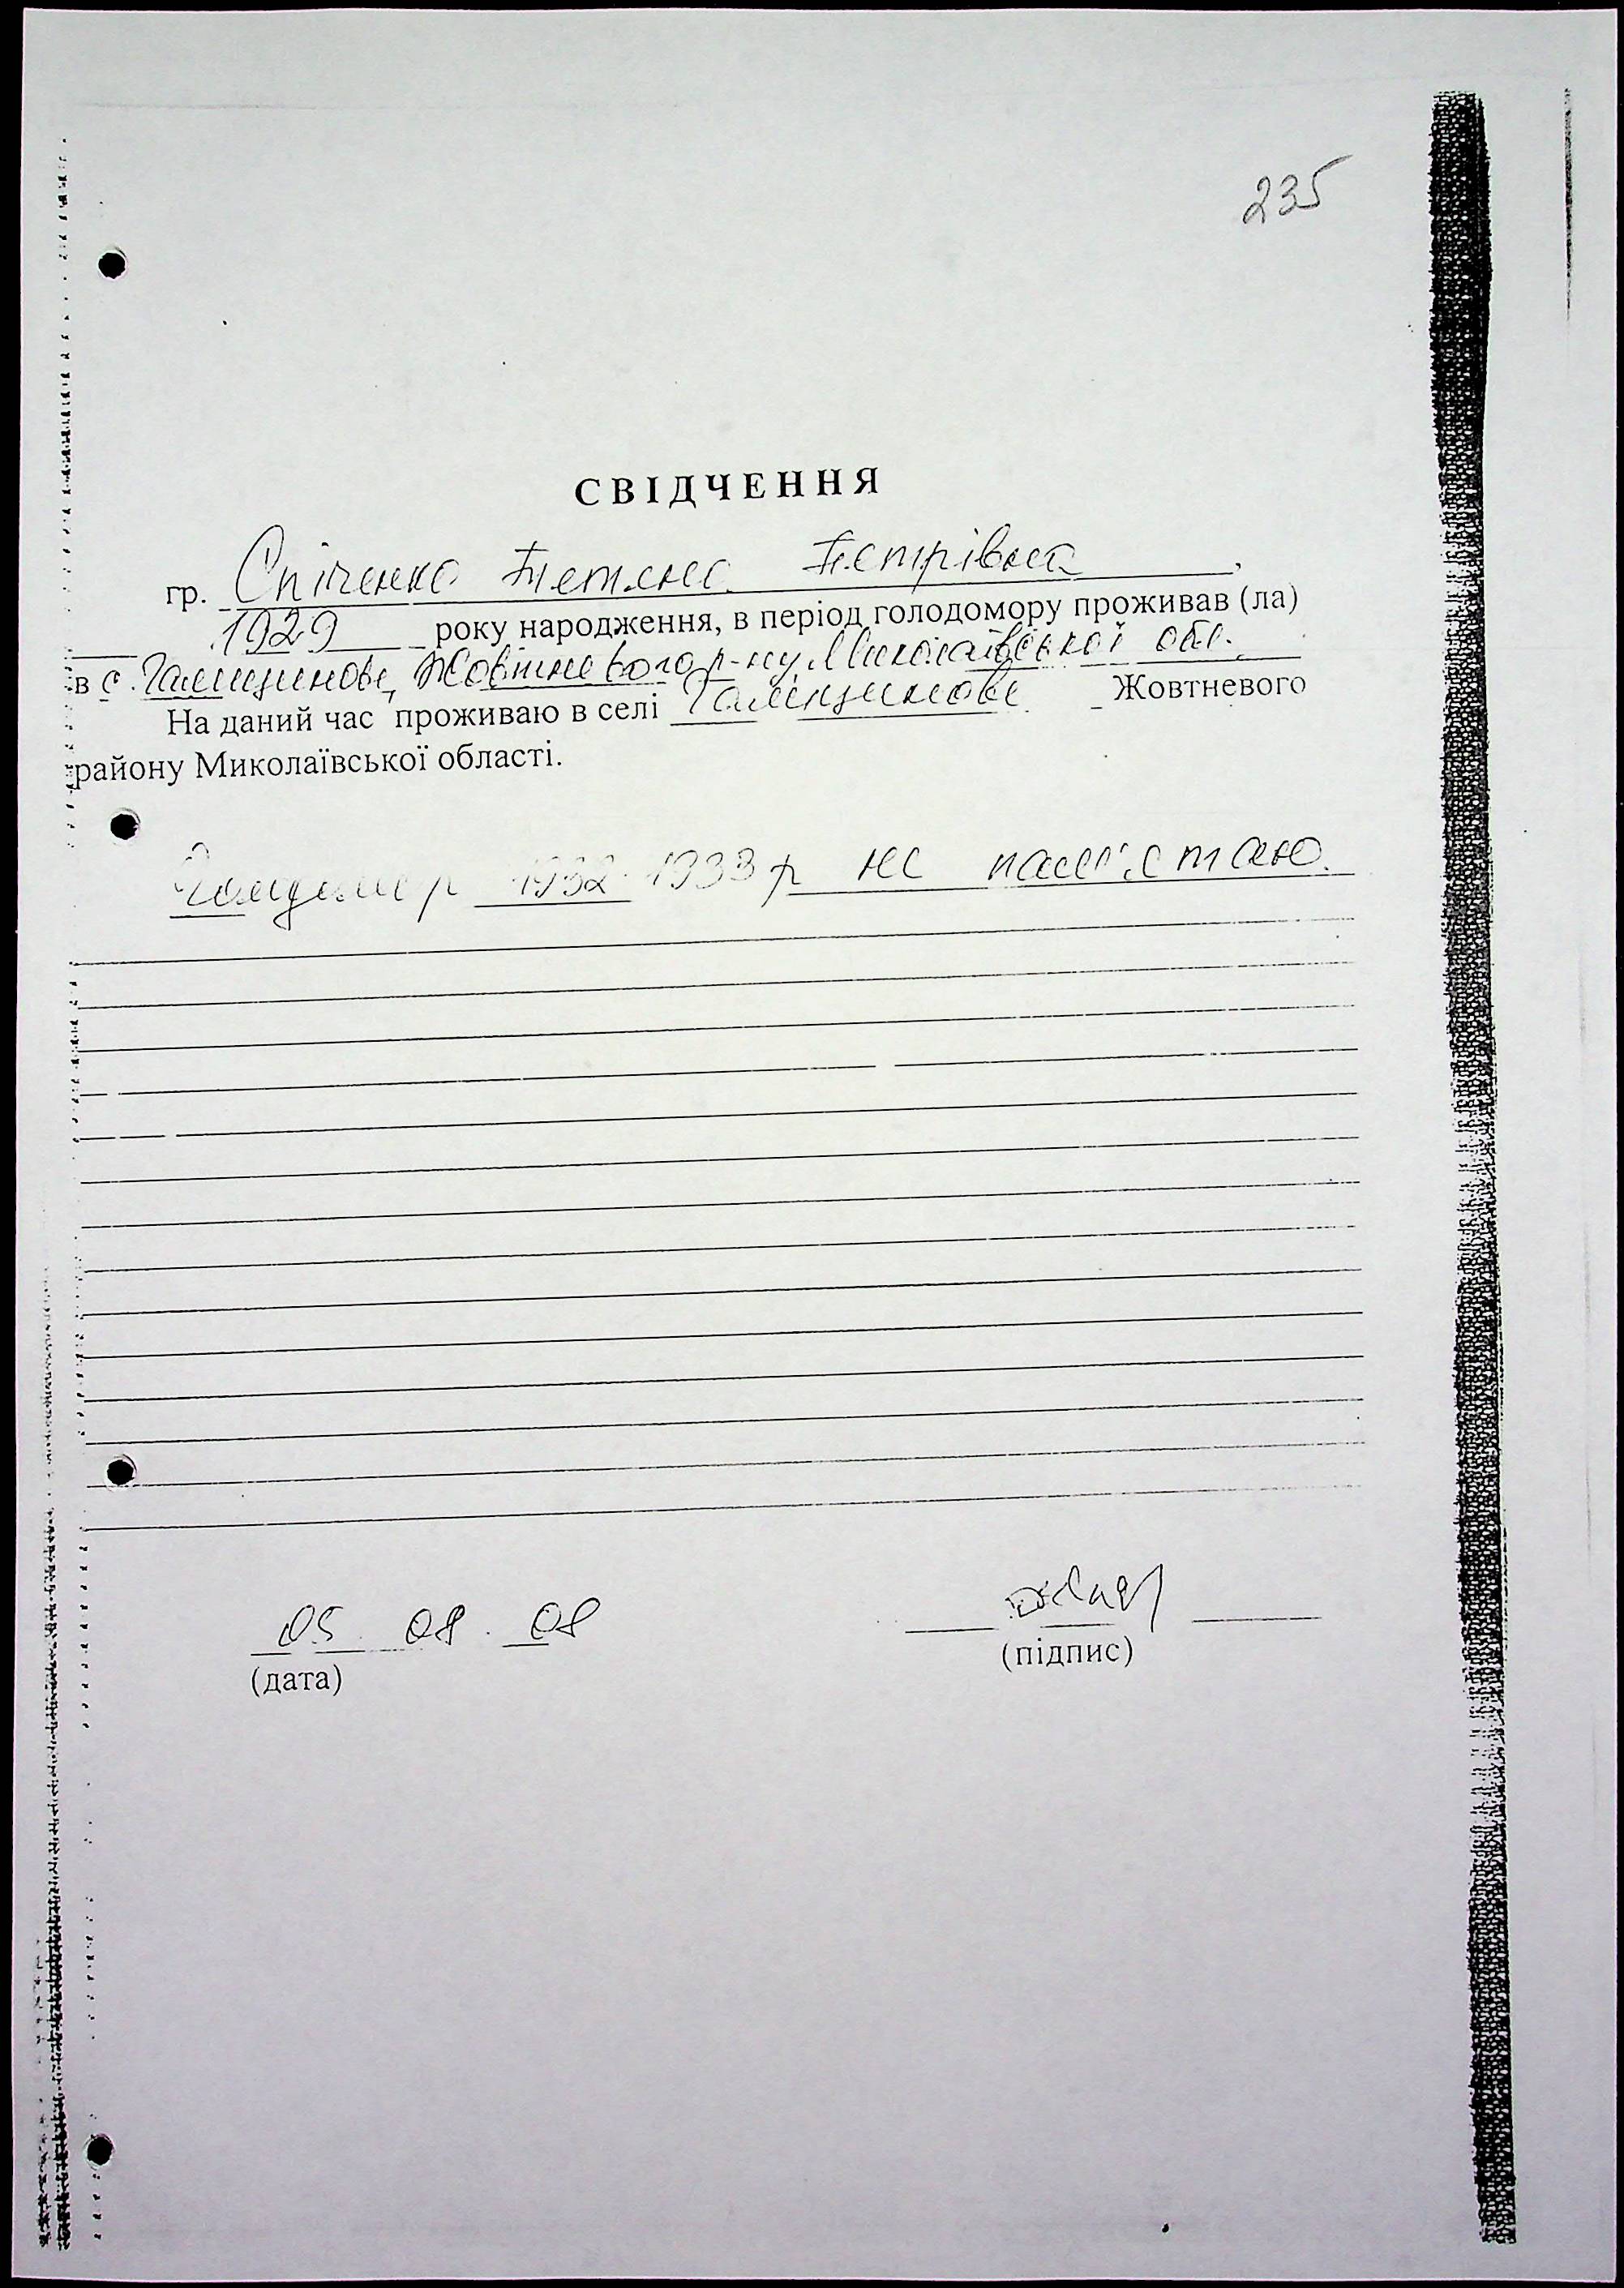 235
СВІДЧЕННЯ
гр. Спіченко Тетяна Петрівна,
1929 року народження, в період голодомору проживав (ла)
в с. Галицинове, Жовтневого р-ну Миколаївської обл.
На даний час проживаю в селі Галицинове Жовтневого
району Миколаївської області.
Голодомор 1932-1933 р не пам'ятаю.
05 08 . 08
(дата)
(підпис)